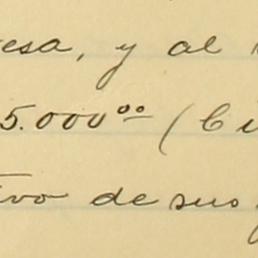 esa, y al
5.000⁰⁰ (Ci
ivo de sus